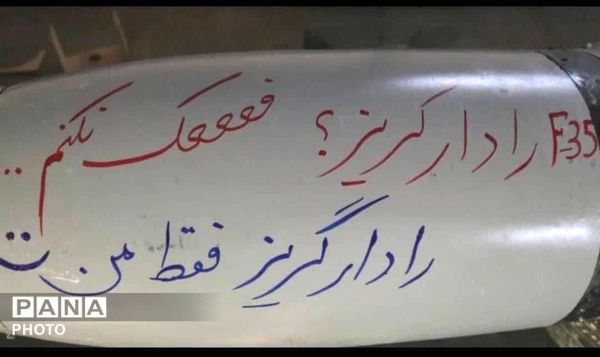 F-35 رادارگریز؟ فففففک نکنم ..
رادارگریز فقط من
PANA
PHOTO